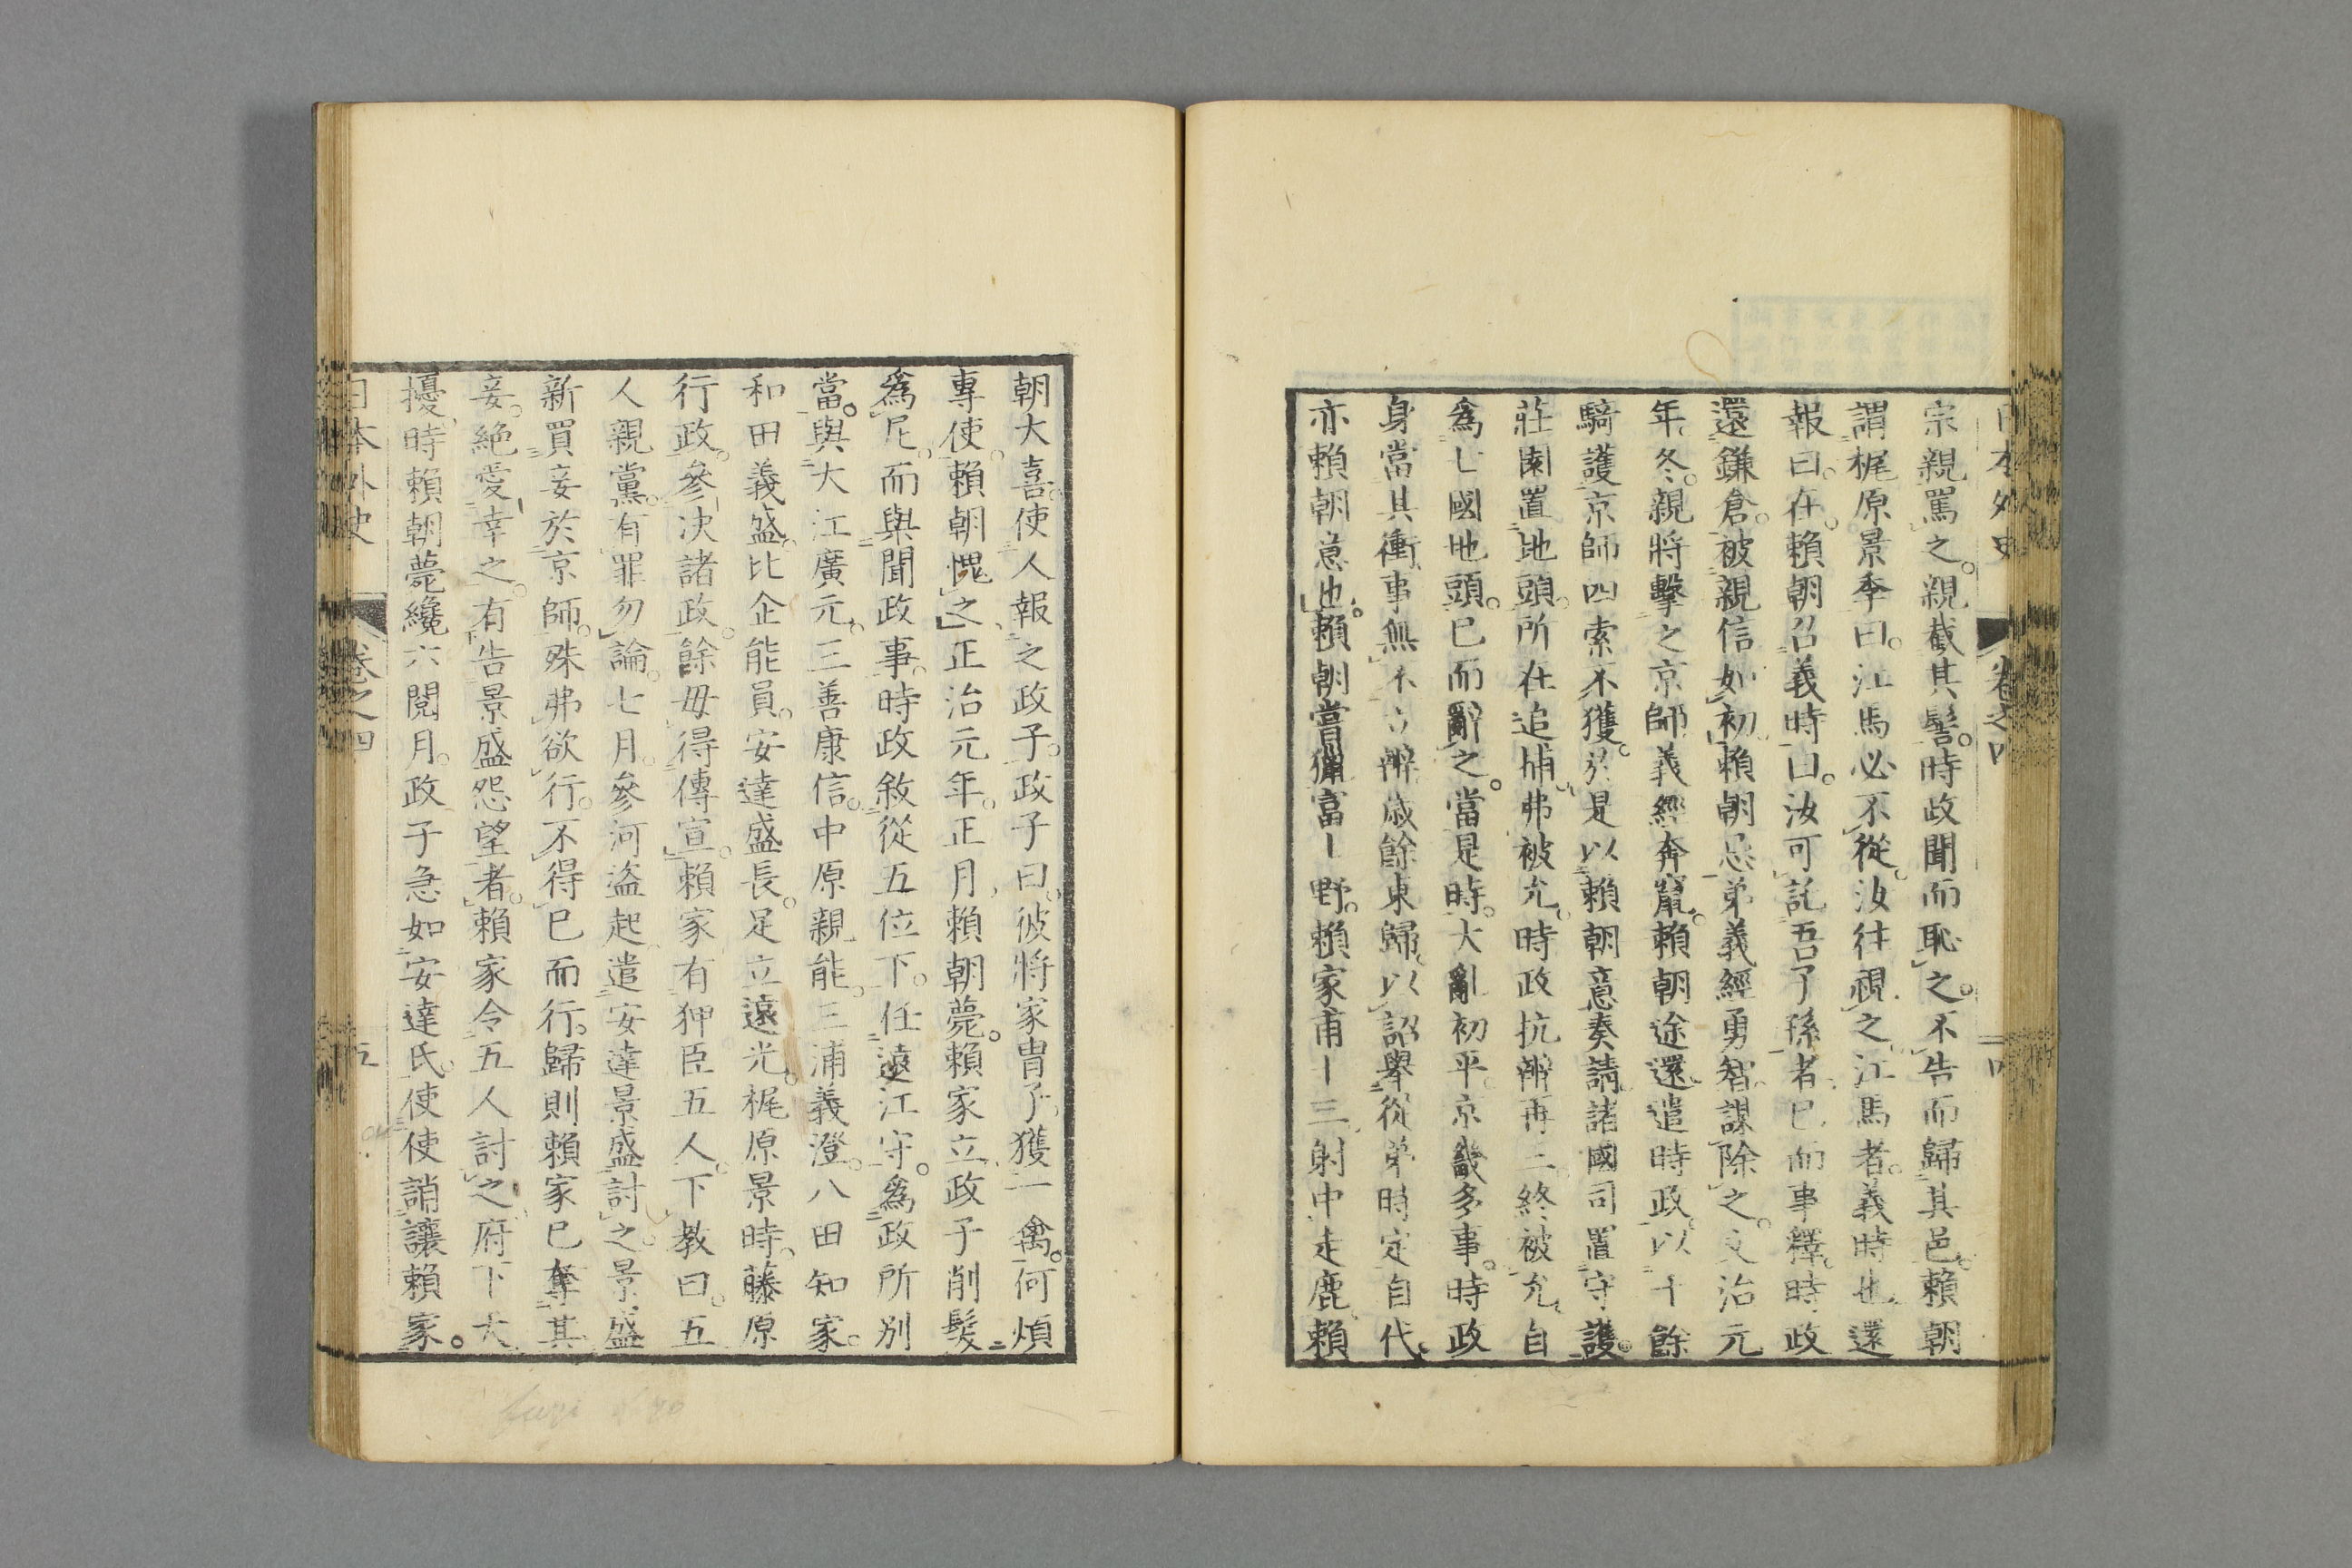 日本外史 卷之四 四
宗親罵之。親截其髻。時政聞而恥之。不告而歸其邑。賴朝
謂梶原景季曰。江馬必不從。汝往視之。江馬者。義時也。還
報曰。在。賴朝召義時曰。汝可託吾子孫者。已而事釋。時政
還鎌倉。被親信如初。賴朝忌弟義經勇智。謀除之。文治元
年。冬。親將擊之京師。義經奔竄。賴朝途還。遣時政。以千餘
騎護京師。四索不獲。於是以賴朝意奏請。諸國司置守護。
莊園置地頭。所在追捕。弗被允。時政抗辯再三。終被允。自
爲七國地頭。已而辭之。當是時。大亂初平。京畿多事。時政
身當其衝。事無不立辦。歲餘東歸。以詔舉從弟時定自代。
亦賴朝意也。賴朝嘗獵富士野。賴家甫十三。射中走鹿。賴
朝大喜。使人報之政子。政子曰。彼將家冑子。獲一禽。何煩
專使。賴朝愧之。正治元年。正月。賴朝薨。賴家立。政子削髮
爲尼。而與聞政事。時政敘從五位下。任遠江守。爲政所別
當。與大江廣元。三善康信。中原親能。三浦義澄。八田知家。
和田義盛。比企能員。安達盛長。足立遠光。梶原景時。藤原
行政。參決諸政。餘毋得傳宣。賴家有狎臣五人。下教曰。五
人親黨。有罪勿論。七月。參河盜起。遣安達景盛討之。景盛
新買妾於京師。殊弗欲行。不得已而行。歸則賴家已奪其
妾。絶愛幸之。有告景盛怨望者。賴家令五人討之。府下大
擾。時賴朝薨纔六閱月。政子急如安達氏。使使誚讓賴家。
日本外史 卷之四 五